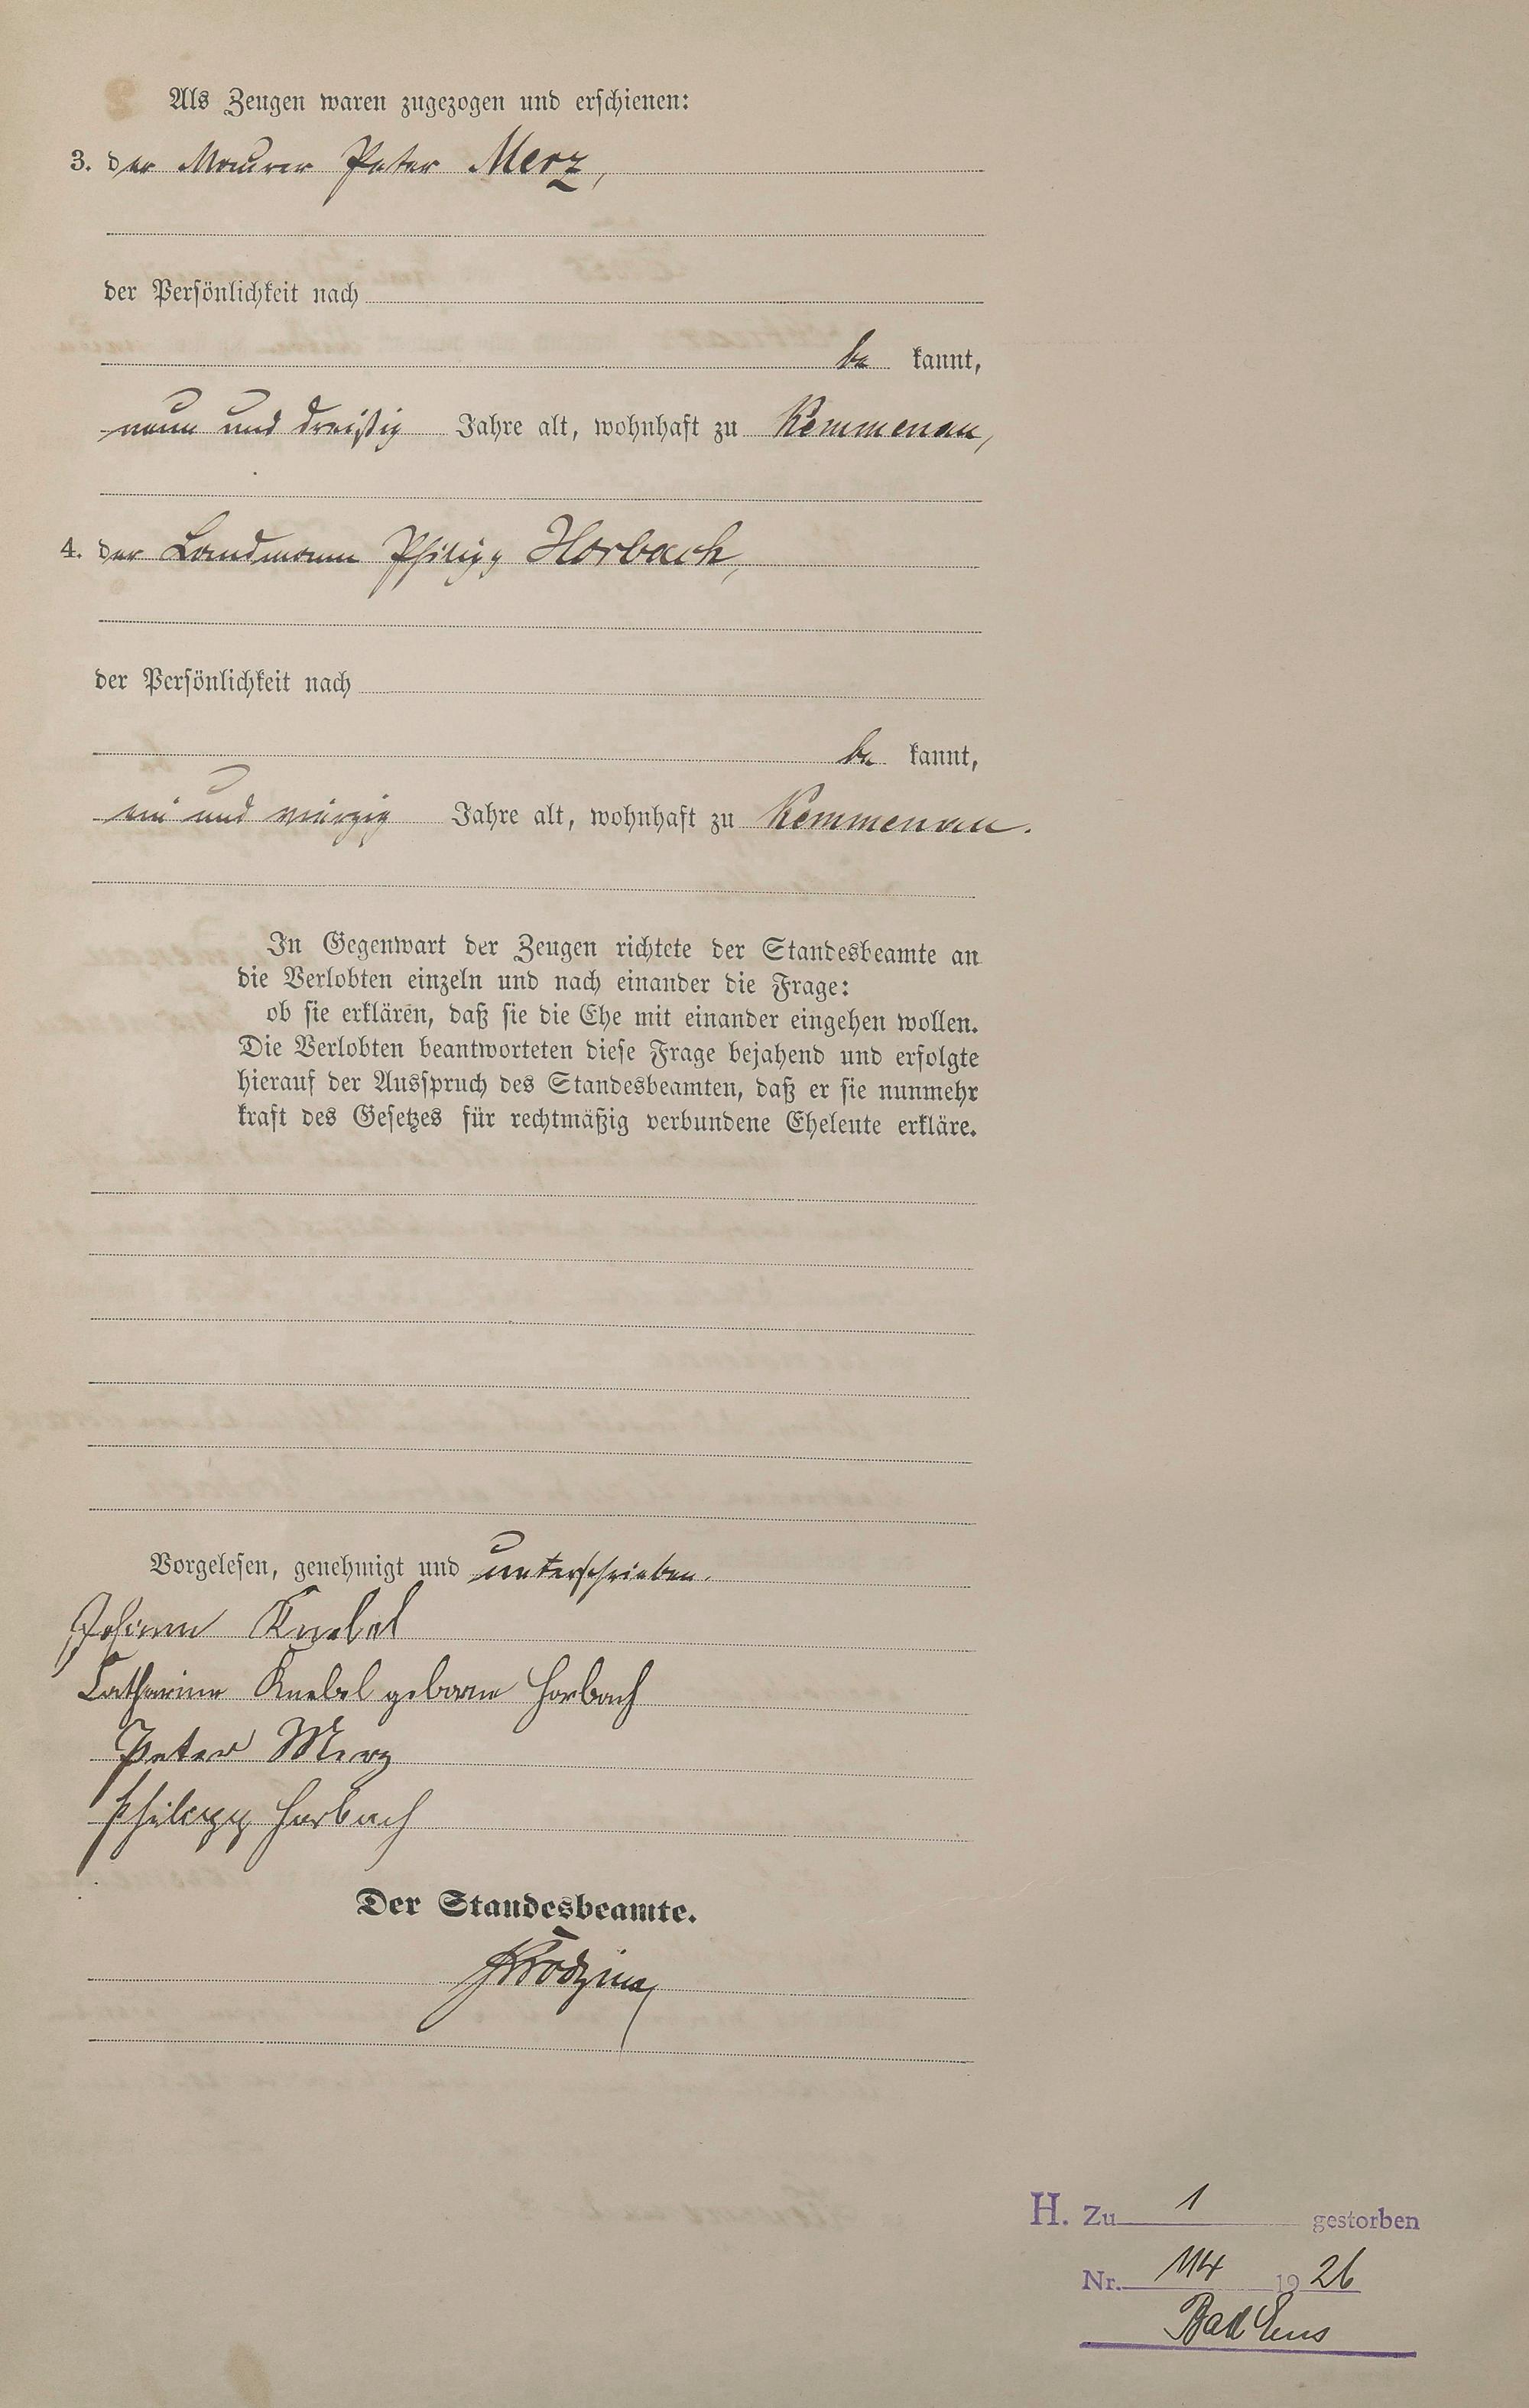 Als Zeugen waren zugezogen und erschienen:
3. der Maurer Peter Merz,
der Persönlichkeit nach
be kannt,
neun und dreißig Jahre alt, wohnhaft zu Kemmenau,
4. der Landmann Philipp Horbach,
der Persönlichkeit nach
be kannt,
ein und vierzig Jahre alt, wohnhaft zu Kemmenau.
In Gegenwart der Zeugen richtete der Standesbeamte an
die Verlobten einzeln und nach einander die Frage:
ob sie erklären, daß sie die Ehe mit einander eingehen wollen.
Die Verlobten beantworteten diese Frage bejahend und erfolgte
hierauf der Ausspruch des Standesbeamten, daß er sie nunmehr
kraft des Gesetzes für rechtmäßig verbundene Eheleute erkläre.
Vorgelesen, genehmigt und unterschrieben.
Johann Knebel
Catharine Knebel geborne Horbach
Peter Merz
Philipp Horbach
Der Standesbeamte.
H. Zu 1 gestorben
Nr. 114 1926
Bad Ems